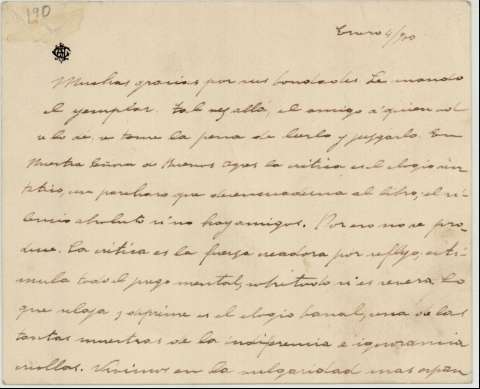 190
Enero 4/90
Muchas gracias por sus bondades. Le mando
el ejemplar. Tal vez allá, el amigo a quien Vd
se tome la pena de leerlo y juzgarlo. En
Nuestra Señora de Buenos Ayres la crítica es el elogio
que desencuaderna al libro, el si-
lencio absoluto si no hay amigos. Por eso no se pro-
duce. La crítica es la fuerza creadora por reflejo, estí-
mula todo el juego mental, sobretodo si es severa. Lo
que relaja y deprime es el elogio banal, una de las
tantas muestras de la indiferencia e ignorancia
criollas. Vivimos en la vulgaridad mas espan